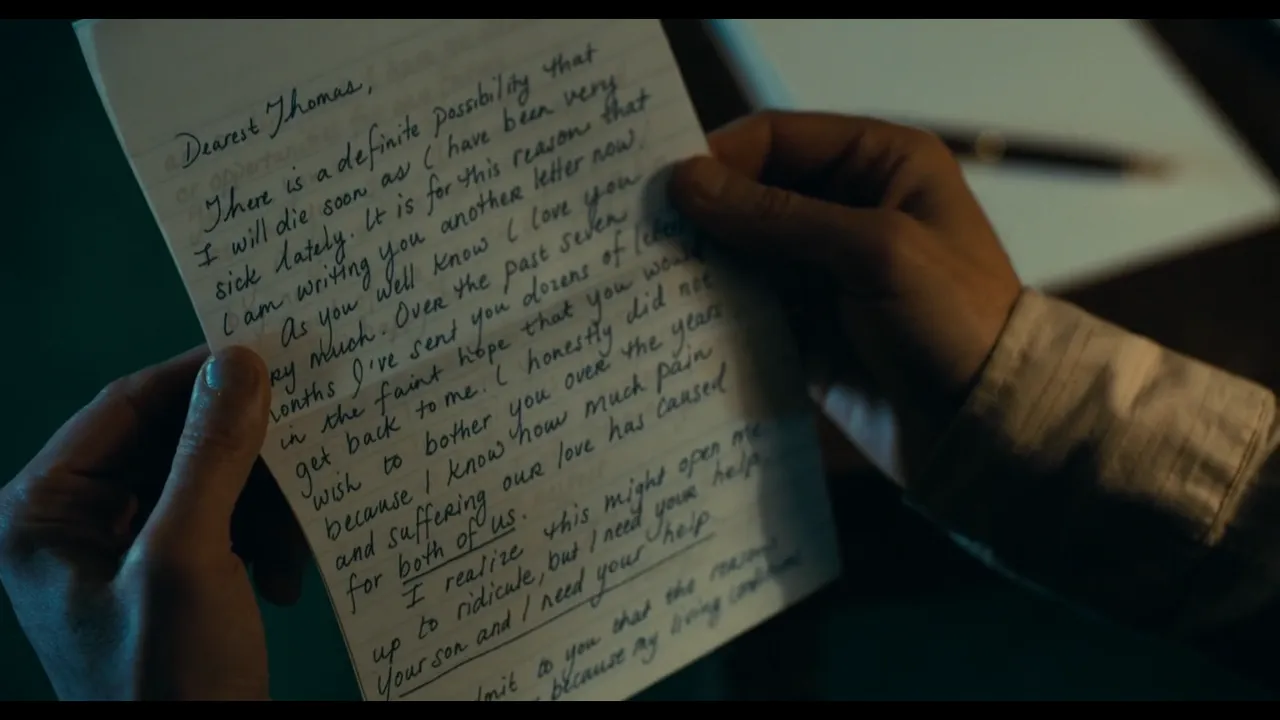 Dearest Thomas,
There is a definite possibility that
I will die soon as I have been very
sick lately. It is for this reason that
I am writing you another letter now.
As you well know I love you
ry much. Over the past seven
onths I've sent you dozens of
in the faint hope that you would
get back to me. I honestly did not
wish to bother you over the years
because I know how much pain
and suffering our love has caused
for both of us.
I realize this might open me
up to ridicule, but I need your help
Your son and I need your help
mit to you that the reasons
because my living